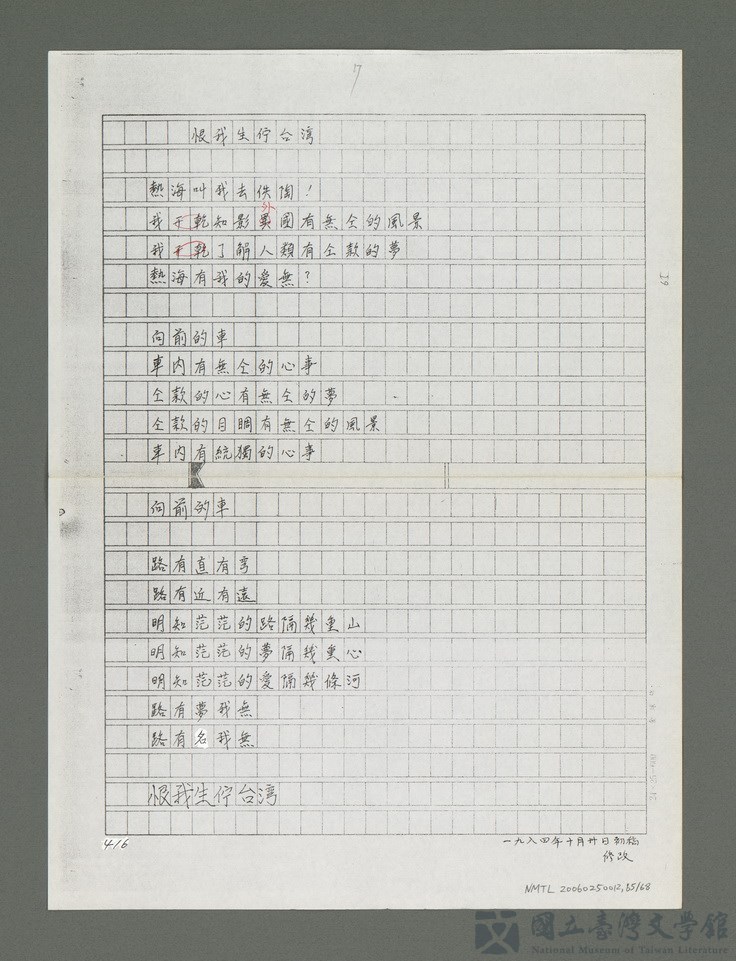 7
恨我生佇台湾
熱海叫我去佚陶！
外
我干乾知影異國有無仝的風景
我干乾了解人類有仝款的夢
熱海有我的愛無？
向前的車
車內有無仝的心事
仝款的心有無仝的夢
仝款的目睭有無仝的風景
車內有統獨的心事
向前的車
路有直有弯
路有近有遠
明知茫茫的路隔幾重山
明知茫茫的夢隔幾重心
明知茫茫的愛隔幾條河
路有夢我無
路有名我無
恨我生佇台湾
416
一九八四年十月廿日初稿
修改
NMTL 20060250012,65/68
國立臺灣文學館
National Museum of Taiwan Literature